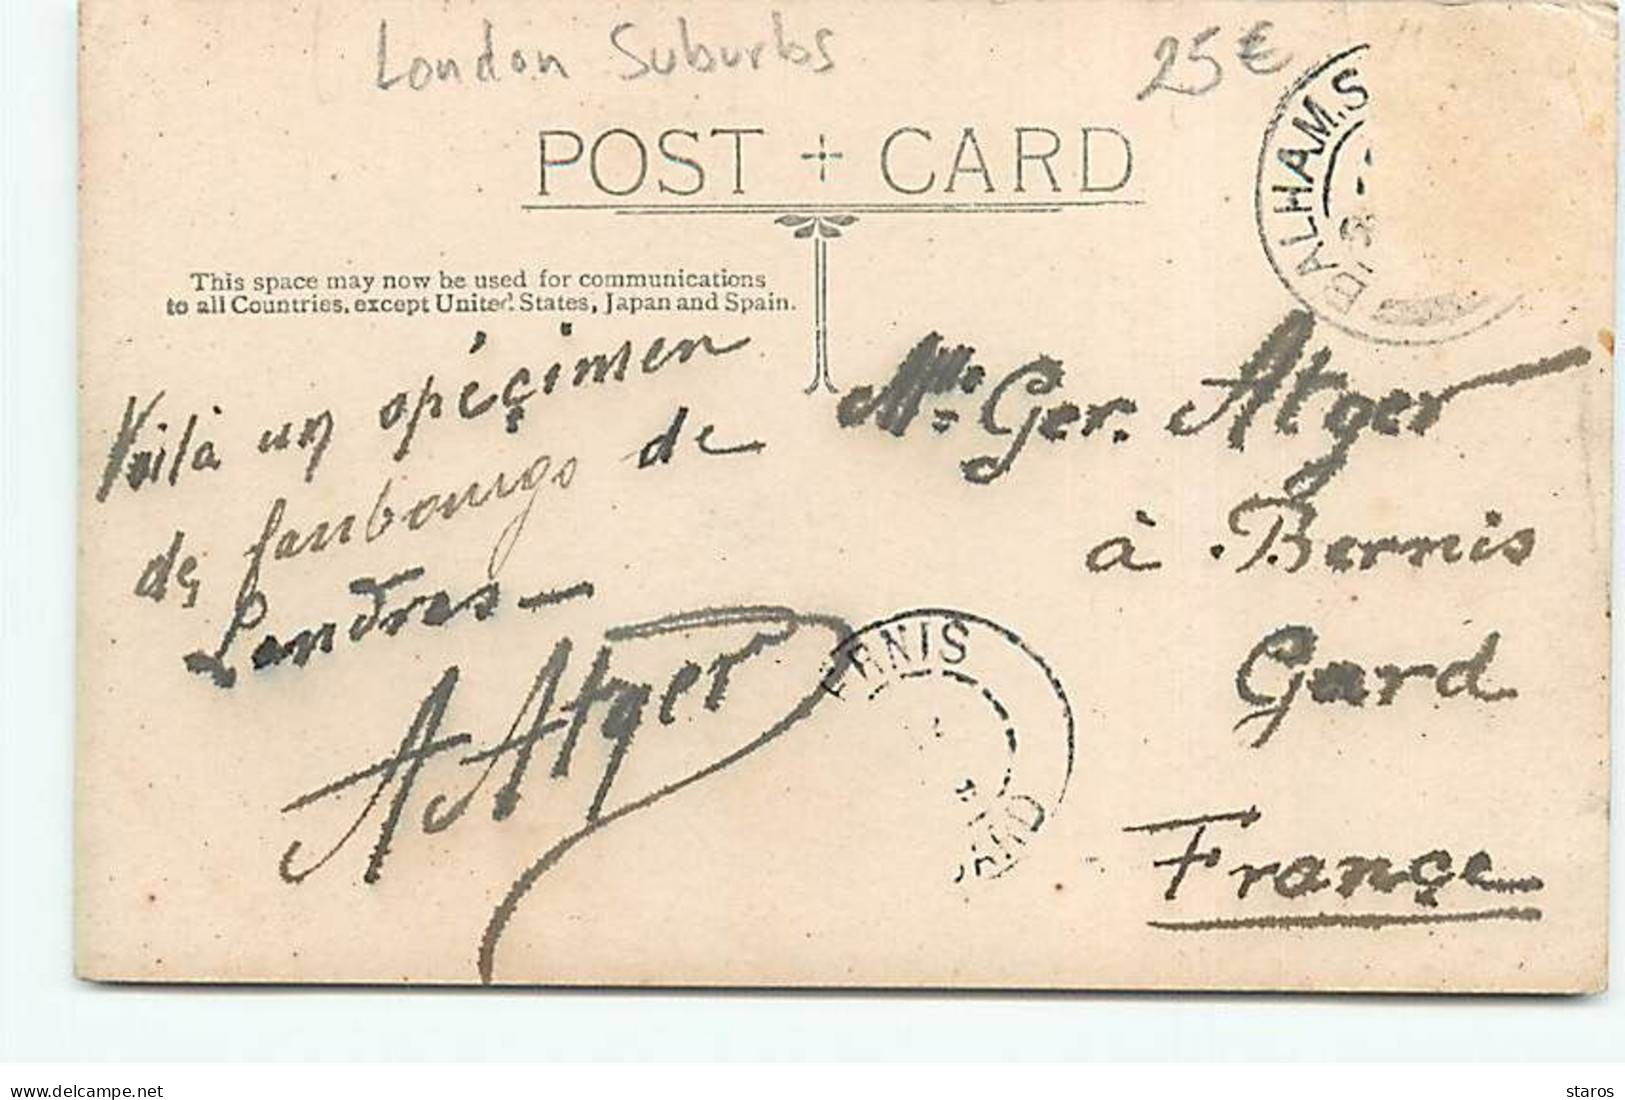 London Suburbs
25€
BALHAM.S
POST + CARD
This space may now be used for communications
to all Countries, except United States, Japan and Spain.
Voilà un spéçimen
des faubourgs de
Londres —
A Atger
Mlle Ger. Atger
à Bernis
Gard
Françe
ERNIS
GARD
www.delcampe.net
staros